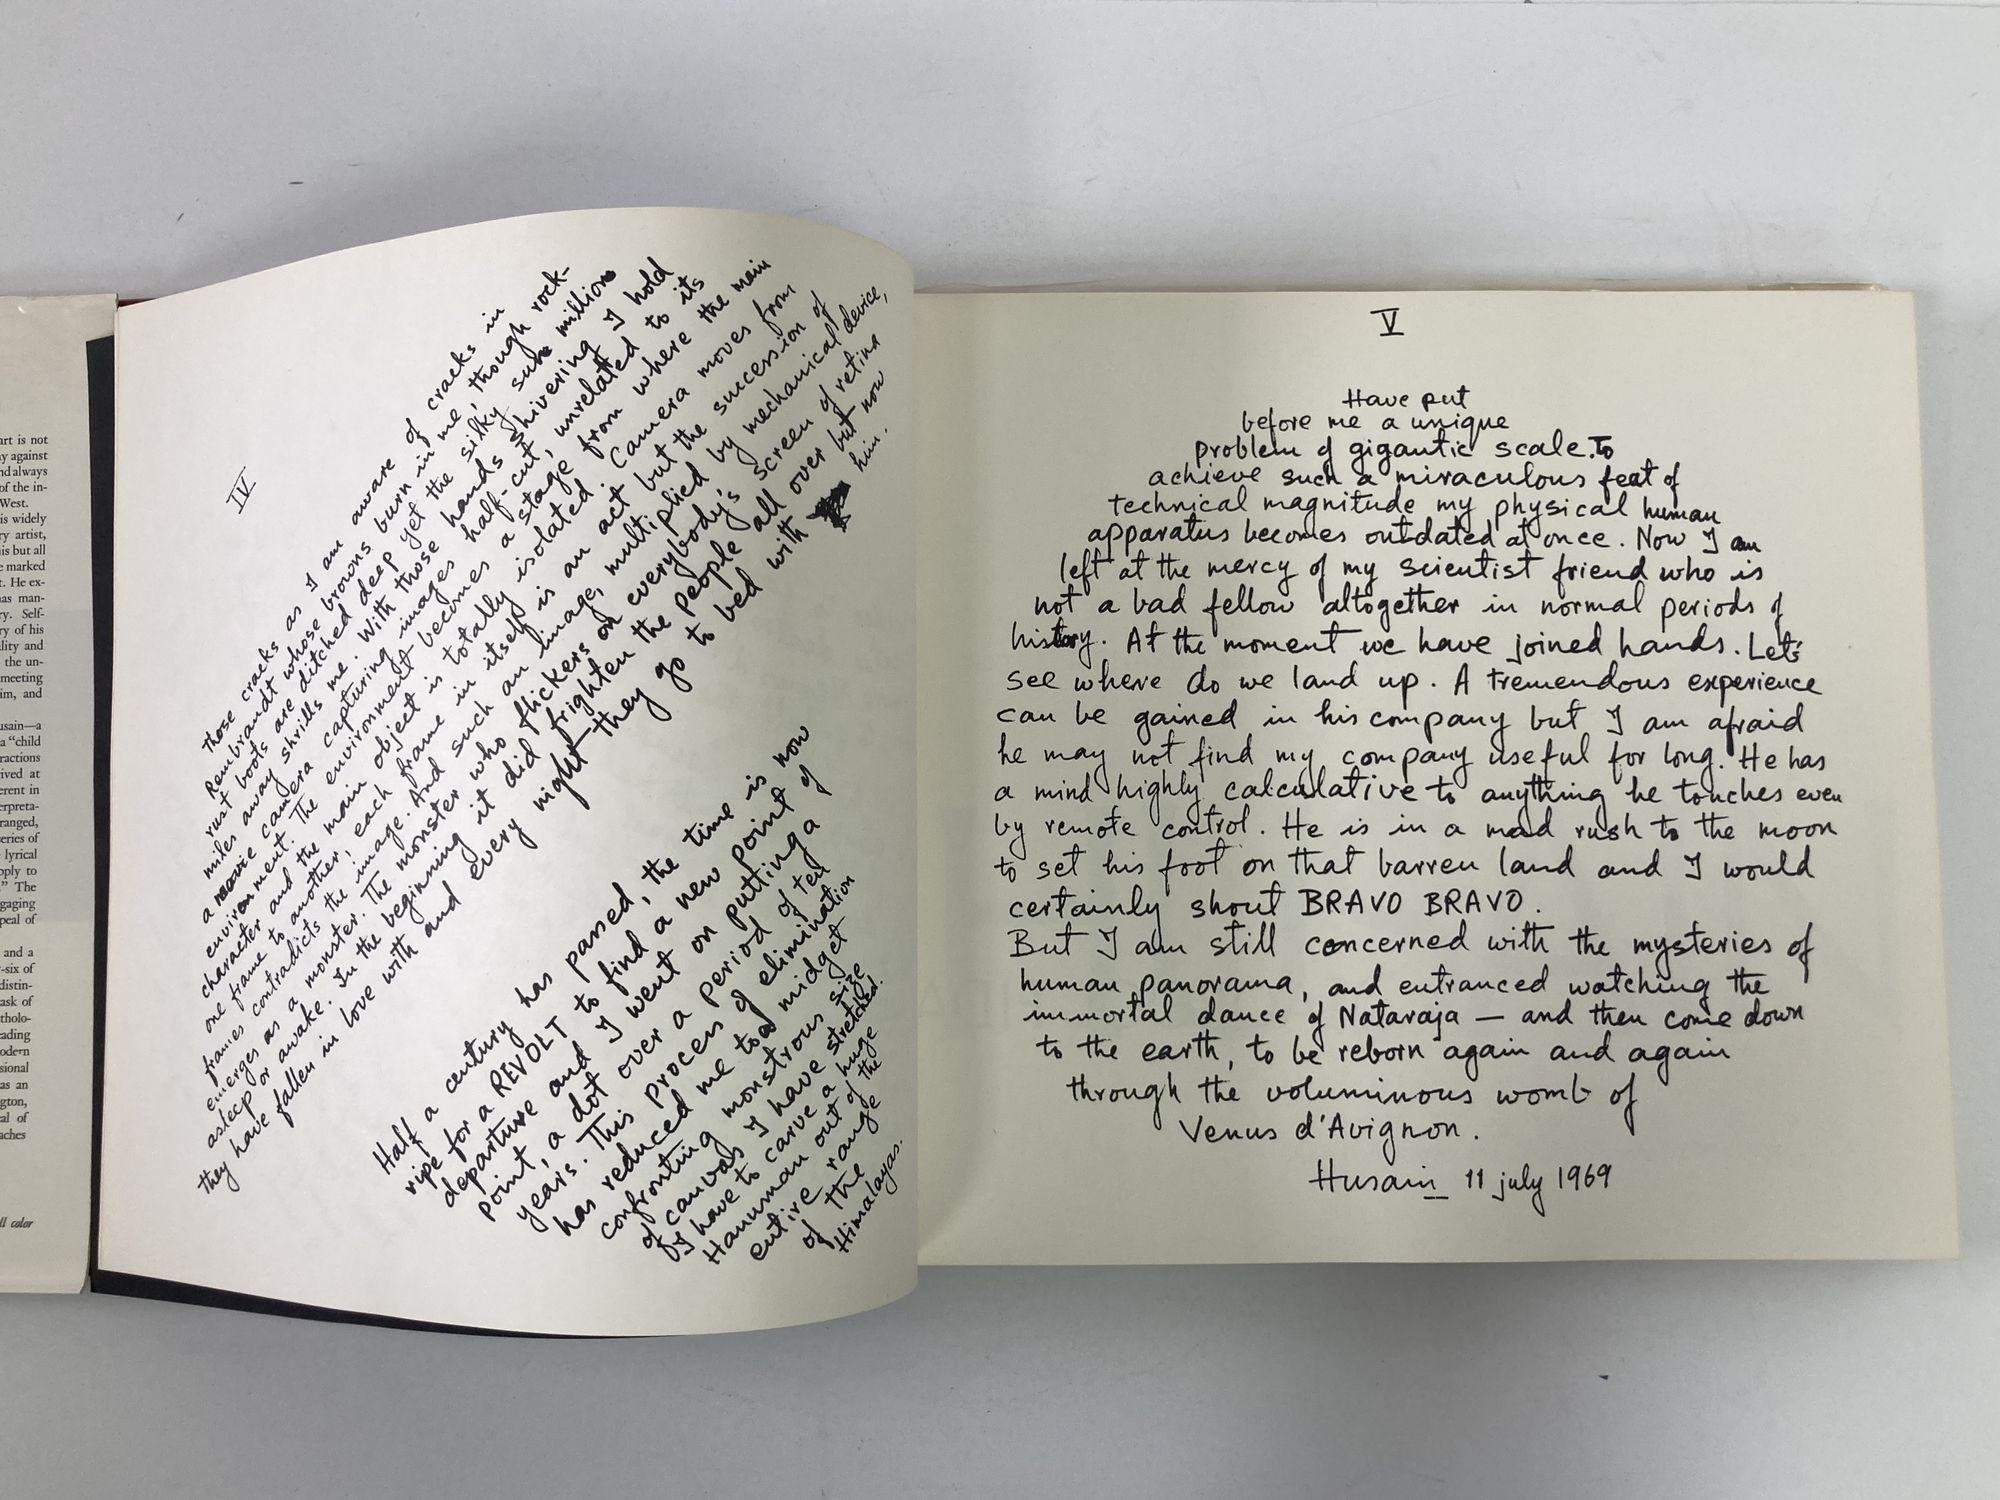 art is not
y against
nd always
of the in-
West.
is widely
ry artist,
is but all
e marked
t. He ex-
as man-
ry. Self-
ry of his
lity and
the un-
meeting
im, and
usain—a
a “child
ractions
ived at
erent in
erpreta-
ranged,
eries of
lyrical
pply to
” The
gaging
peal of
and a
-six of
distin-
ask of
tholo-
eading
odern
sional
as an
gton,
al of
aches
ll color
IV
Those cracks as I am aware of cracks in
Rembrandt whose browns burn in me, though rock-
rust boots are ditched deep yet the silky millions
miles away shrills me. With those hands shivering I hold
a movie camera capturing images half-cut, unrelated to its
environment. The environment becomes a stage from where the main
character and the main object is totally isolated. Camera moves from
one frame to another, each frame in itself is an act but the succession of
frames contradicts the image. And such an image, multiplied by mechanical device,
emerges as a monster. The monster who flickers on everybody's screen of retina
asleep or awake. In the beginning it did frighten the people all over but now
they have fallen in love with and every night they go to bed with him.
Half a century has passed, the time is now
ripe for a REVOLT to find a new point of
departure and I went on putting a
point, a dot over a period of ten
years. This process of elimination
has reduced me to a midget
confronting monstrous size
of canvas I have stretched.
I have to carve a huge
Hanuman out of the
entire range
of the
Himalayas.
V
Have put
before me a unique
problem of gigantic scale. To
achieve such a miraculous feat of
technical magnitude my physical human
apparatus becomes out-dated at once. Now I am
left at the mercy of my scientist friend who is
not a bad fellow altogether in normal periods of
history. At the moment we have joined hands. Let's
see where do we land up. A tremendous experience
can be gained in his company but I am afraid
he may not find my company useful for long. He has
a mind highly calculative to anything he touches even
by remote control. He is in a mad rush to the moon
to set his foot on that barren land and I would
certainly shout BRAVO BRAVO.
But I am still concerned with the mysteries of
human panorama, and entranced watching the
immortal dance of Nataraja — and then come down
to the earth, to be reborn again and again
through the voluminous womb of
Venus d'Avignon.
Husain 11 july 1969